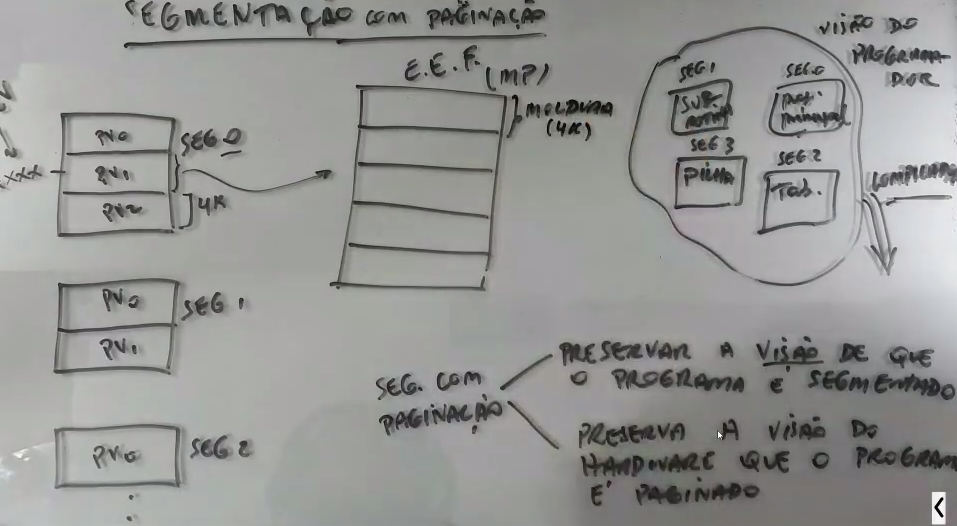 SEGMENTAÇÃO COM PAGINAÇÃO
E.E.F. (MP)
MOLDURA
(4K)
PV0
PV1
PV2
SEG 0
4K
XXX
PV0
PV1
SEG 1
PV0
SEG 2
VISÃO DO
PROGRAMA-
DOR
SEG 1
SUB-
ROTINA
SEG 0
PROG.
PRINCIPAL
SEG 3
PILHA
SEG 2
TAB.
SEG. COM
PAGINAÇÃO
PRESERVAR A VISÃO DE QUE
O PROGRAMA É SEGMENTADO
PRESERVA A VISÃO DO
HARDWARE QUE O PROGRAM
É PAGINADO